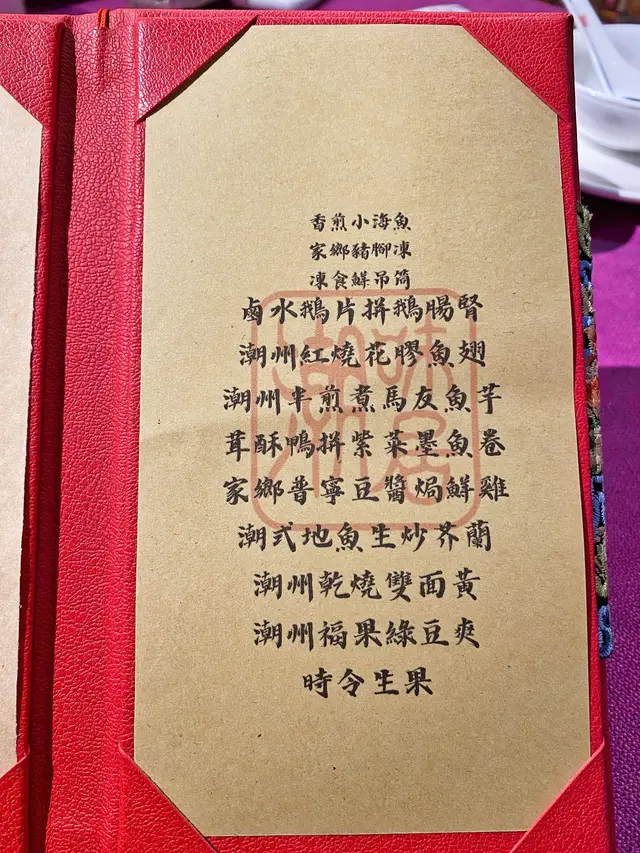 香煎小海魚
家鄉豬腳凍
凍食鮮吊筒
鹵水鵝片拼鵝腸腎
潮州紅燒花膠魚翅
潮州半煎煮馬友魚芋
茸酥鴨拼紫菜墨魚卷
家鄉普寧豆醬焗鮮雞
潮式地魚生炒芥蘭
潮州乾燒雙面黃
潮州福果綠豆爽
時令生果